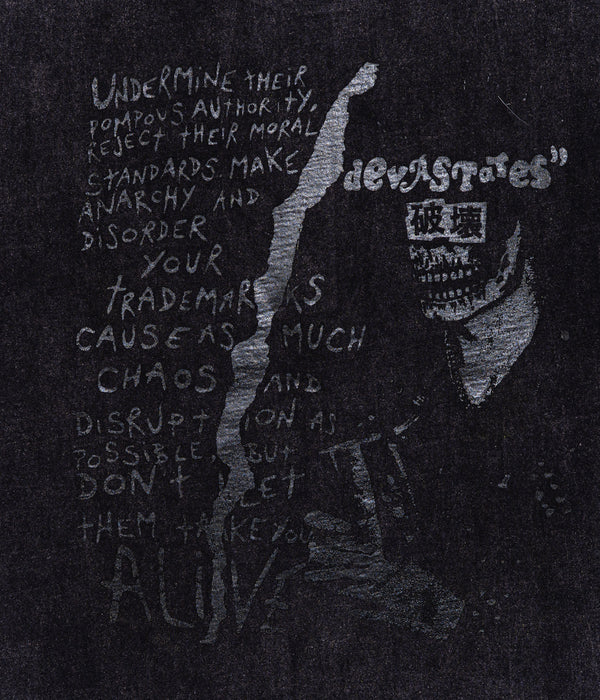 UNDERMINE THEIR
POMPOUS AUTHORITY,
REJECT THEIR MORAL
STANDARDS. MAKE
ANARCHY AND
DISORDER
YOUR
TRADEMARKS
CAUSE AS MUCH
CHAOS AND
DISRUPTION AS
POSSIBLE, BUT
DON'T LET
THEM TAKE YOU
ALIVE
devASTaTes"
破壊